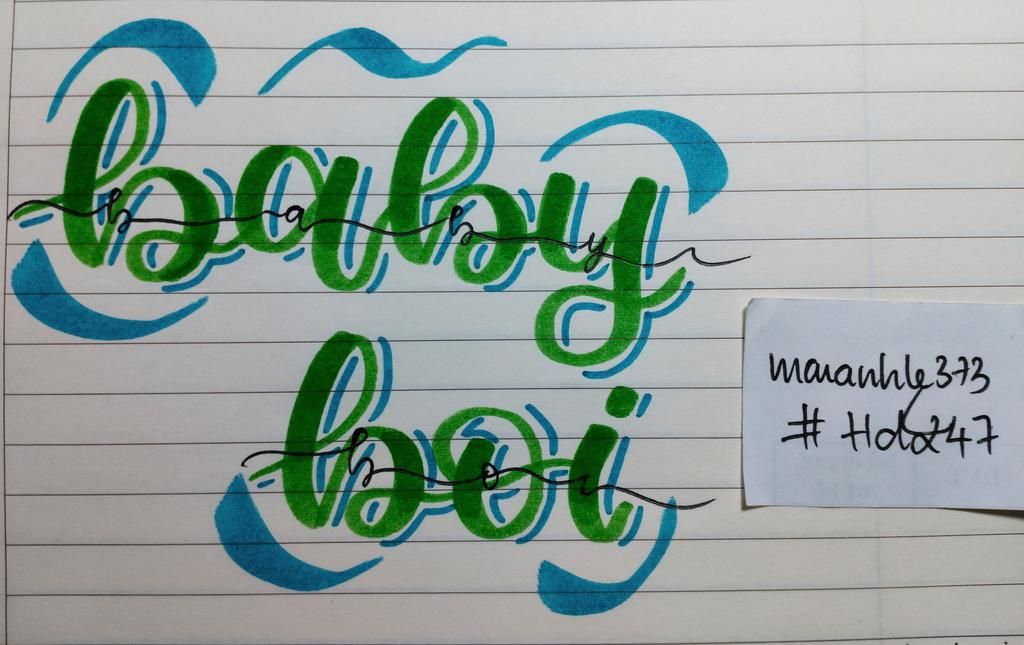 baby
b a b y
boi
b o i
maianhle373
# Hda247